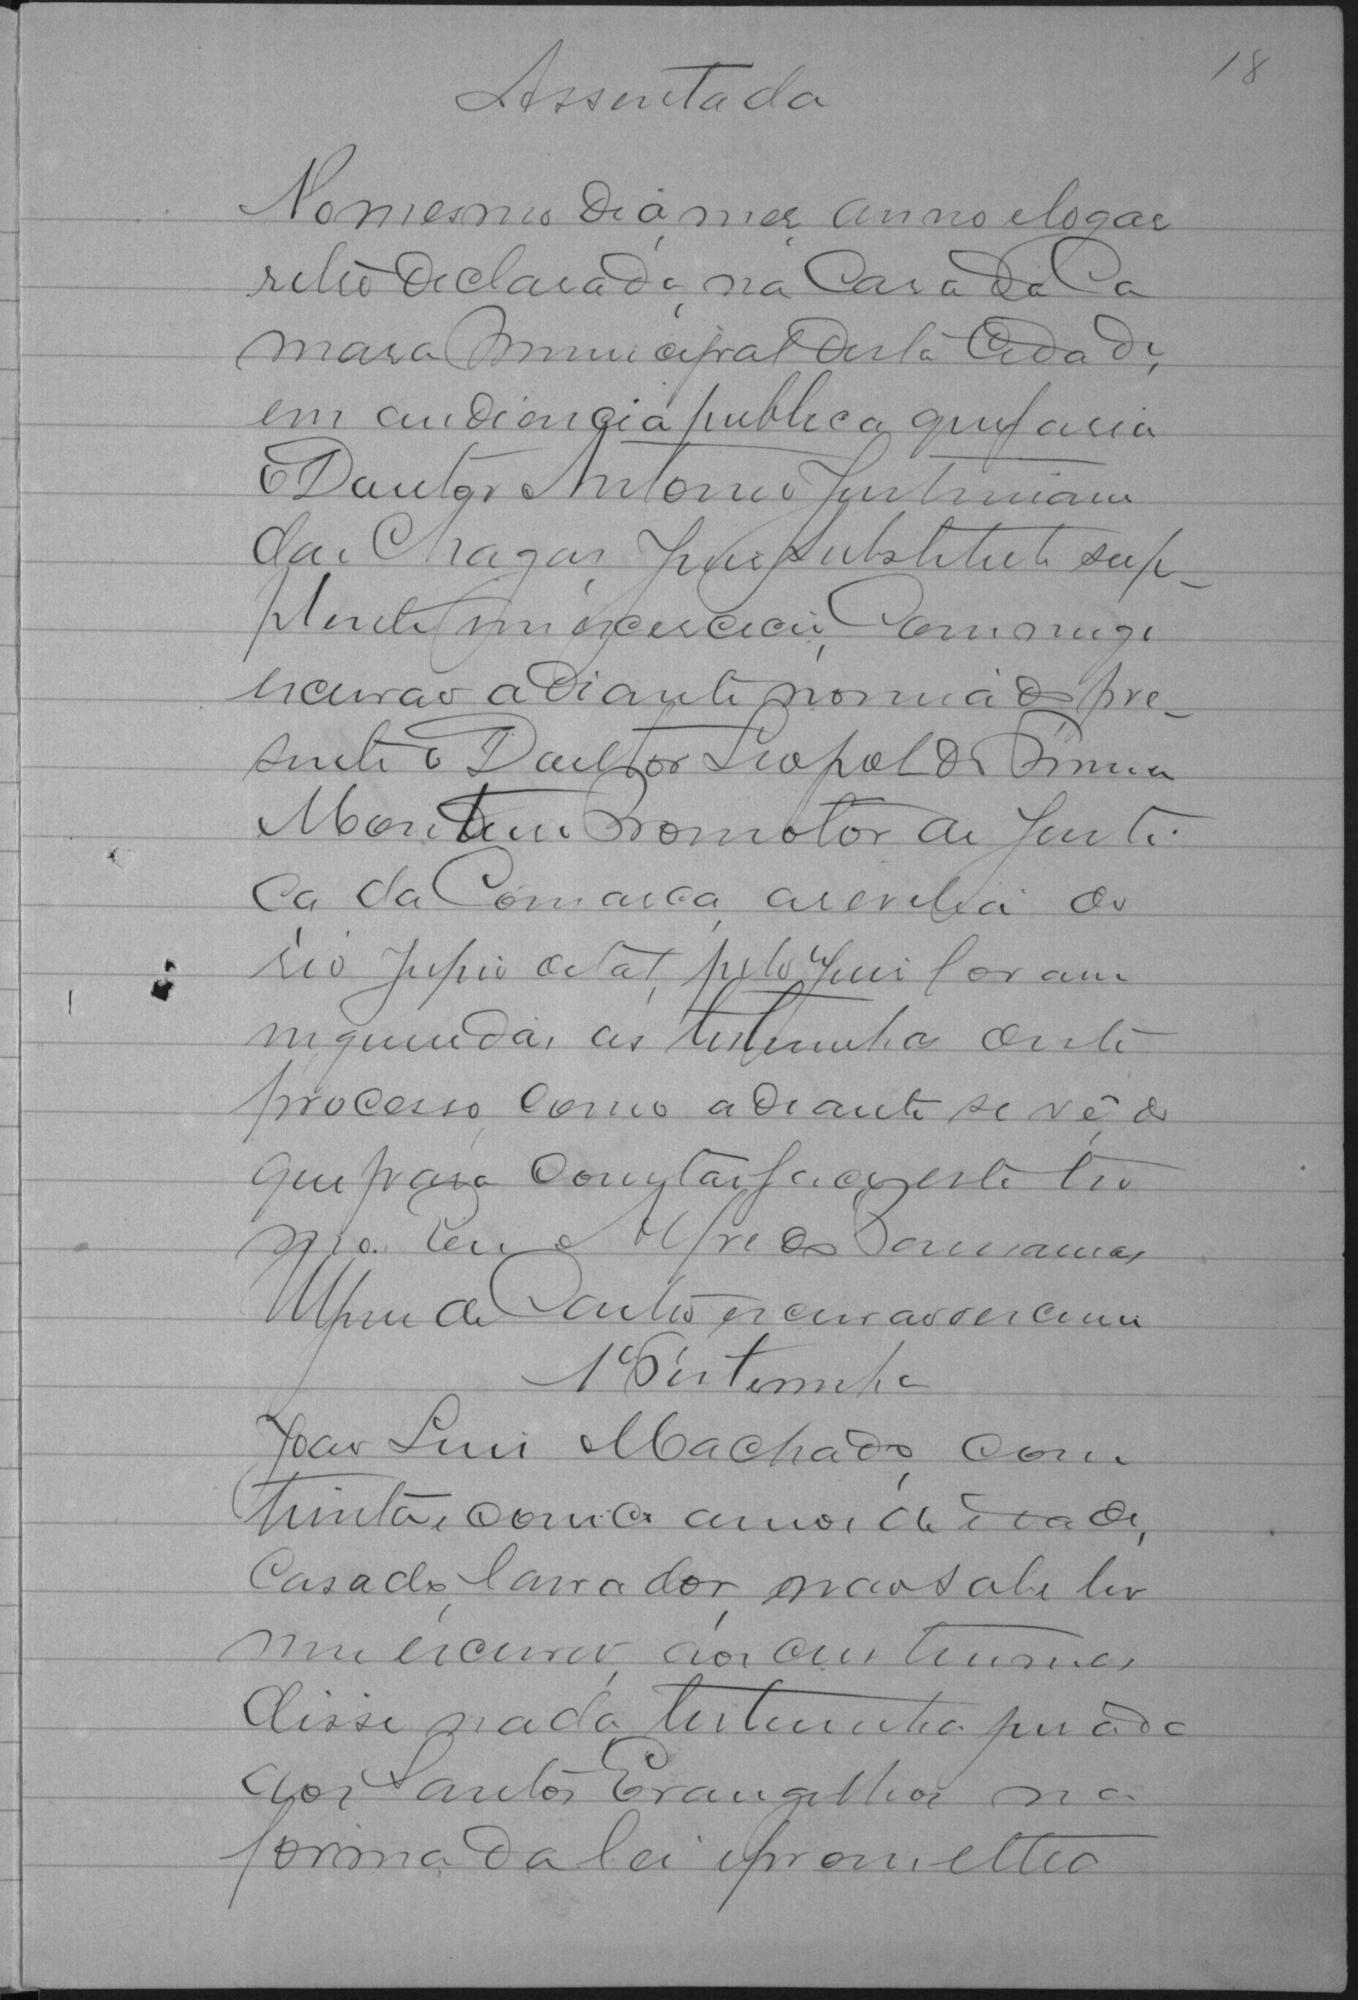 18
Assentada
No mesmo dia, mez, anno e logar
retro declarado, na Casa da Ca
mara Municipal desta Cidade,
em audiencia publica que fasia
o Doutor Antonio Justiniano
das Chagas, Juiz substituto sup-
plente em exercicio, Commigo
escrivão adiante nomiado pre-
sente o Doutor Leopoldo
Monteiro Promotor de Justi
ça da Comarca, a revelia do
réo pelo Juiz foram
inqueridas as testemunhas deste
processo, como adiante se vê, do
que para constar faço este ter
mo. Eu Alfredo
de Castro escrivão escrevi
1ª Testemunha
João Luis Machado, com
trinta e cinco annos de idade,
Casado, lavrador, não sabe ler
nem escrever, aos custumes
disse nada testemunha jurada
aos Santos Evangelhos na
forma da lei e prometteo